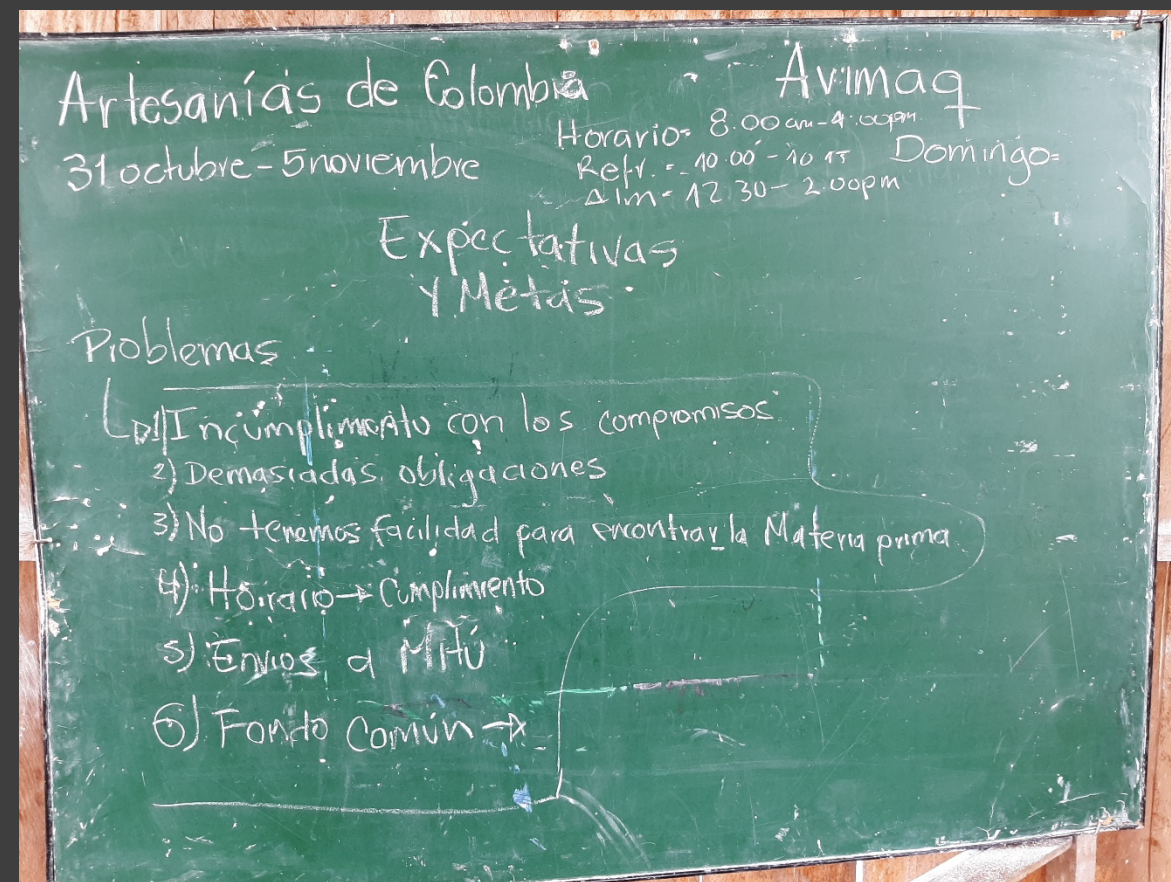 Artesanías de Colombia
31 octubre - 5 noviembre
Avimaq
Horario= 8:00 am - 4:00pm.
Refr. = 10:00 - 10 15
Alm = 12:30 - 2:00pm
Domingo=
Expectativas
Y Metas
Problemas
1) Incumplimiento con los compromisos
2) Demasiadas obligaciones
3) No tenemos facilidad para encontrar la Materia prima
4) Horario → Cumplimiento
5) Envios a Mitú
6) Fondo Común →